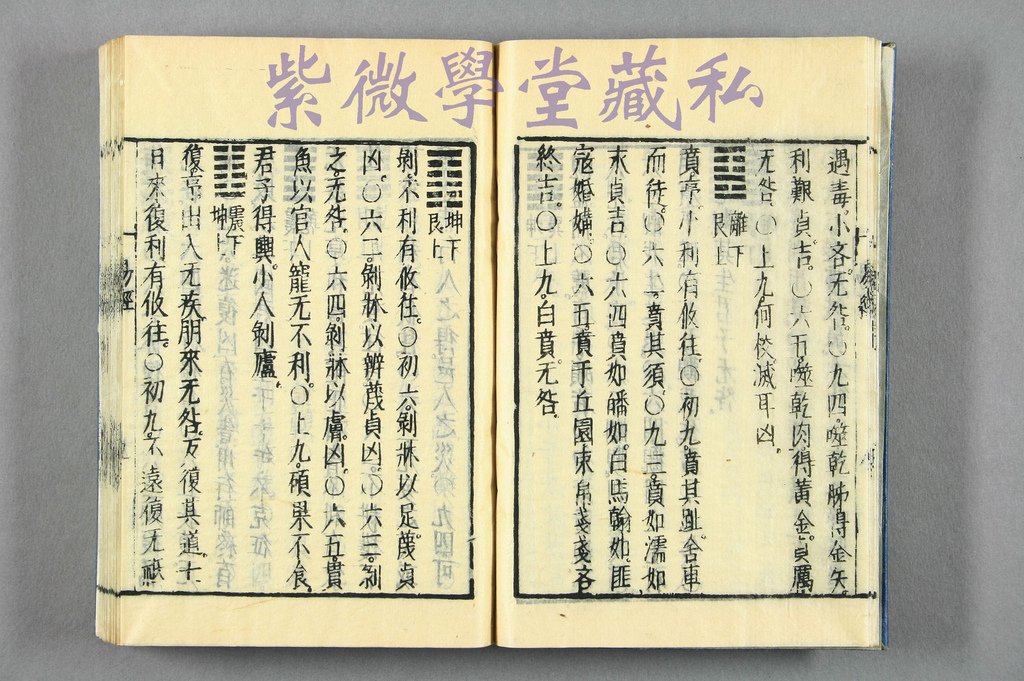 紫微學堂藏私
遇毒。小吝。无咎。〇九四。噬乾胏。得金矢。
利艱貞吉。〇六五。噬乾肉。得黃金。貞厲
无咎。〇上九。何校滅耳。凶。
䷕離下艮
賁亨。小利有攸往。〇初九。賁其趾。舍車
而徒。〇六二。賁其須。〇九三。賁如濡如
永貞吉。〇六四。賁如皤如。白馬翰如。匪
寇婚媾。〇六五。賁于丘園。束帛戔戔。吝
終吉。〇上九。白賁。无咎。
䷖坤下艮上
剝。不利有攸往。〇初六。剝牀以足。蔑貞
凶。〇六二。剝牀以辨。蔑貞凶。〇六三。剝
之。无咎。〇六四。剝牀以膚。凶。〇六五。貫
魚。以宮人寵。无不利。〇上九。碩果不食
君子得輿。小人剝廬。
䷗震下坤上
復。亨。出入无疾。朋來无咎。反復其道。七
日來復。利有攸往。〇初九。不遠復。无祗
易經